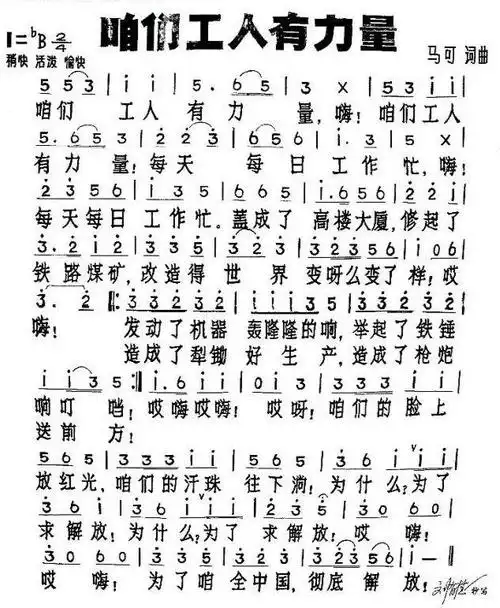 咱们工人有力量
1=ᵇB 2/4
稍快 活泼 愉快
马可 词曲
5 5 3 | i i | 5 . 6 5 | 3 x | 5 3 i i |
咱们 工人 有力 量，嗨！咱们工人
5 . 6 5 3 | 2 2 3 | 5 6 5 6 | i . 3 | 5 x |
有力 量！每天 每日 工作 忙，嗨！
2 3 5 6 | i 3 5 | i 5 6 i | i . 6 5 6 | 2 2 i 6 |
每天每日 工作忙。盖成了 高楼大厦，修起了
3 . 2 i 2 | 3 3 5 | 6 0 2 | 3 2 3 5 6 | i 0 6 |
铁路煤矿，改造得 世 界 变呀么变了样！哎
3 . 2 ‖: 3 3 2 3 2 | i i i 3 5 | 3 3 2 3 2 |
嗨！ 发动了机器 轰隆隆的响，举起了铁锤
造成了犁锄 好生产，造成了枪炮
i i 3 5 :‖ i . 6 i i | 0 i 3 | i i 3 3 3 |
响叮 当！哎嗨哎嗨！哎呀！咱们的脸上
送前 方！
5 6 5 | 3 3 3 i | 5 6 5 | 3 6 i | i i i |
放红光，咱们的汗珠 往下淌！为什么？为了
3 6 i | 3 6 i | i i i | 3 6 i | 3 0 6 0 |
求解放！为什么？为了 求解放！哎 嗨！
3 0 6 0 | 3 5 5 | 3 2 3 | 3 2 3 5 6 | i — |
哎 嗨！为了咱 全中国，彻底解 放！